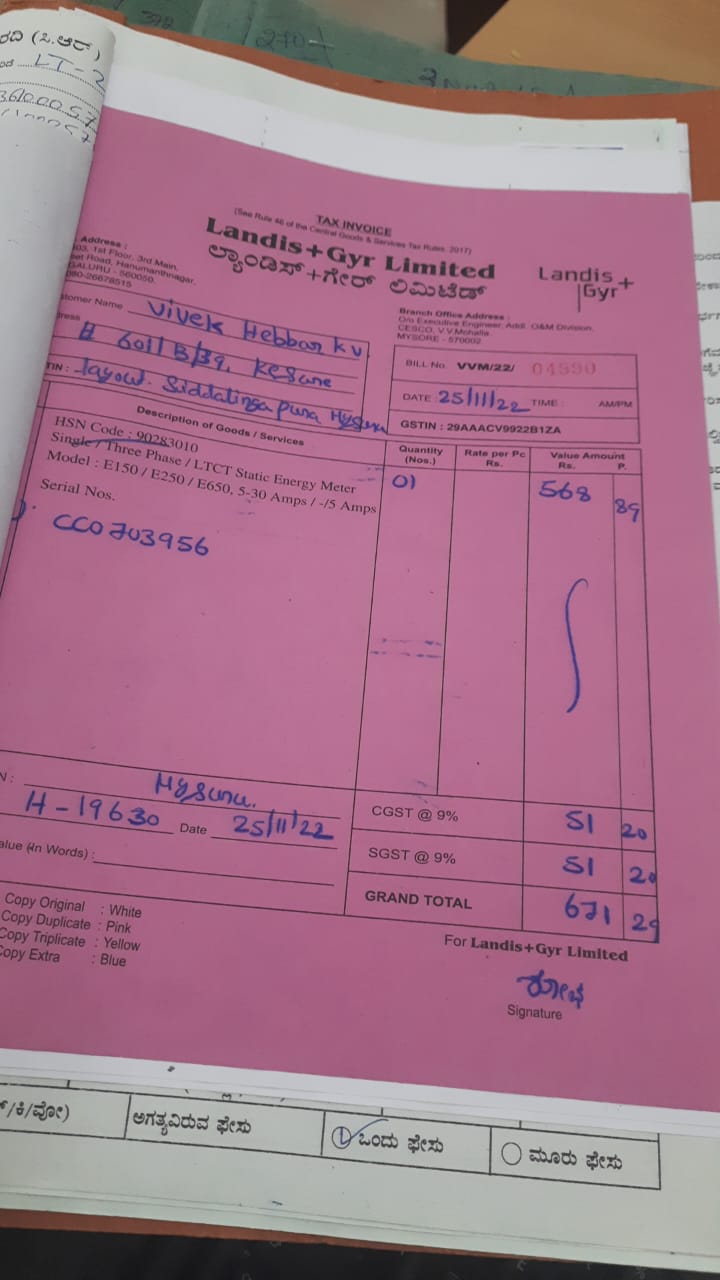 392
270/-
ರದಿ (ಸಿ.ಆರ್)
LT-2
TAX INVOICE
(See Rule 46 of the Central Goods & Services Tax Rules, 2017)
Landis+Gyr Limited
ಲ್ಯಾಂಡಿಸ್+ಗೇರ್ ಲಿಮಿಟೆಡ್
Landis+
Gyr
Address :
1st Floor, 3rd Main,
Road, Hanumanthnagar,
GALURU - 560050.
080-26678515
Branch Office Address :
O/o Executive Engineer, Addl. O&M Division,
CESCO, V.V.Mohalla,
MYSORE - 570002
tomer Name Vivek Hebbar K V
dress # 6011 B/39, Kesare
TIN : layout. Siddalingapura Mysuru
BILL No. VVM/22/ 04590
DATE : 25/11/22 TIME : AM/PM
GSTIN : 29AAACV9922B1ZA
Description of Goods / Services
Quantity (Nos.)
Rate per Pc Rs.
Value Amount Rs. P.
HSN Code : 90283010
Single / Three Phase / LTCT Static Energy Meter
Model : E150 / E250 / E650, 5-30 Amps / -/5 Amps
Serial Nos.
01
568 89
CC0703956
N : Mysuru.
H-19630 Date 25/11/22
alue (In Words) :
CGST @ 9% 51 20
SGST @ 9% 51 20
GRAND TOTAL 671 29
Copy Original : White
Copy Duplicate : Pink
Copy Triplicate : Yellow
Copy Extra : Blue
For Landis+Gyr Limited
Signature
ಅಗತ್ಯವಿರುವ ಫೇಸು
1 ಒಂದು ಫೇಸು
ಮೂರು ಫೇಸು